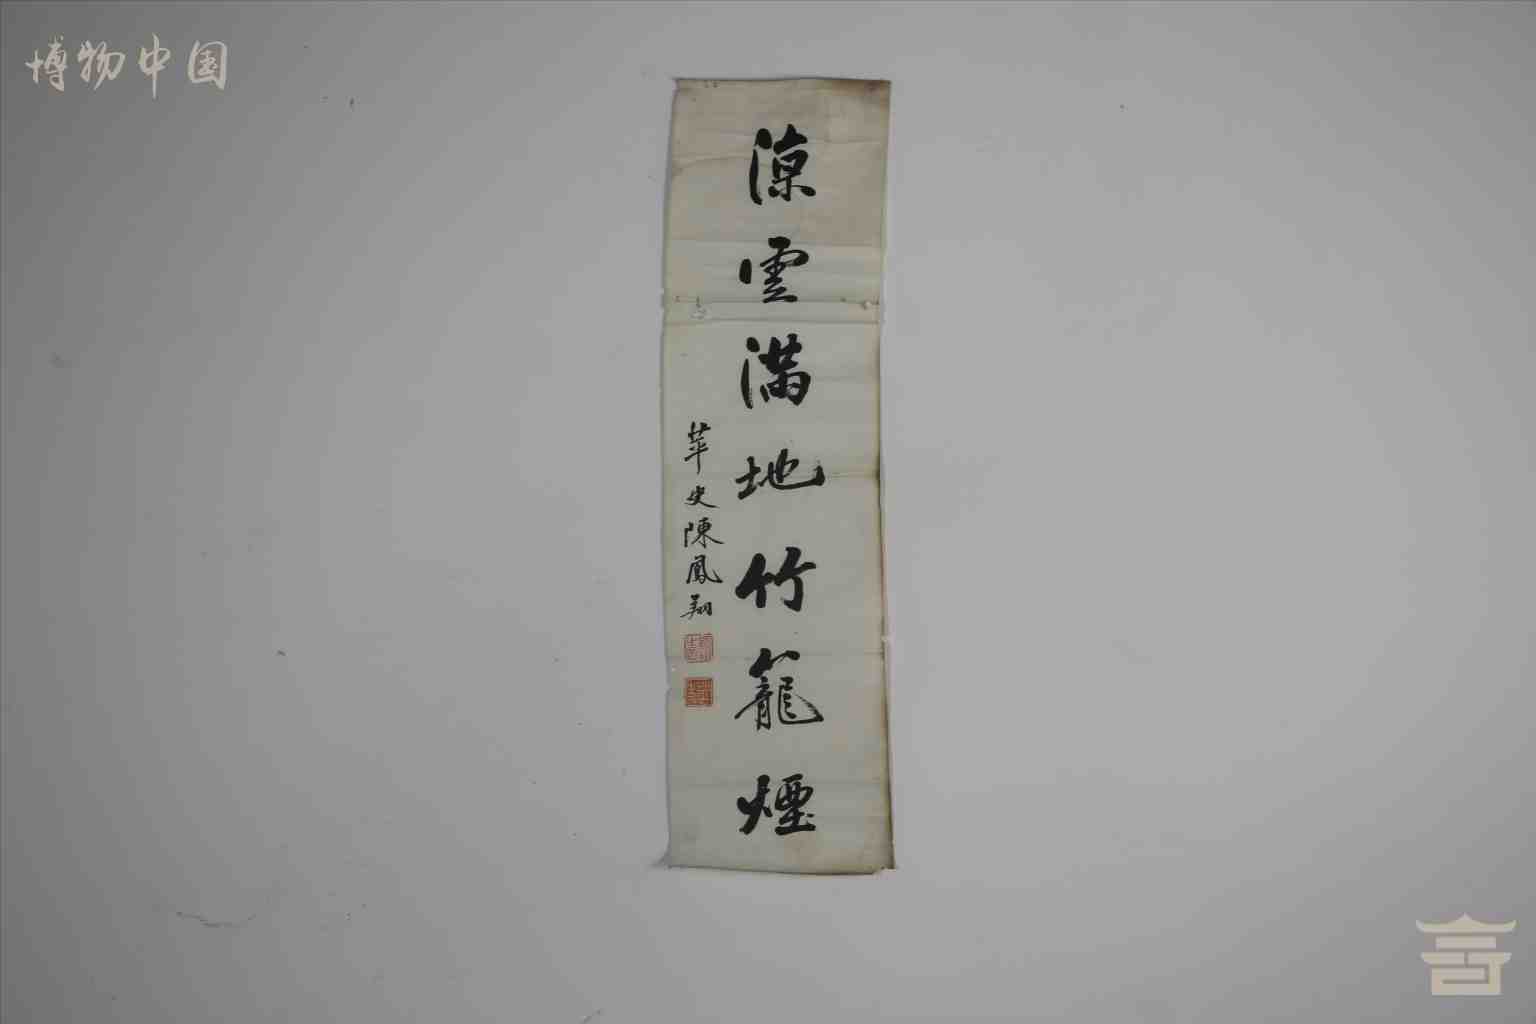 博物中国
涼雲滿地竹籠煙
苹史陳鳳翔